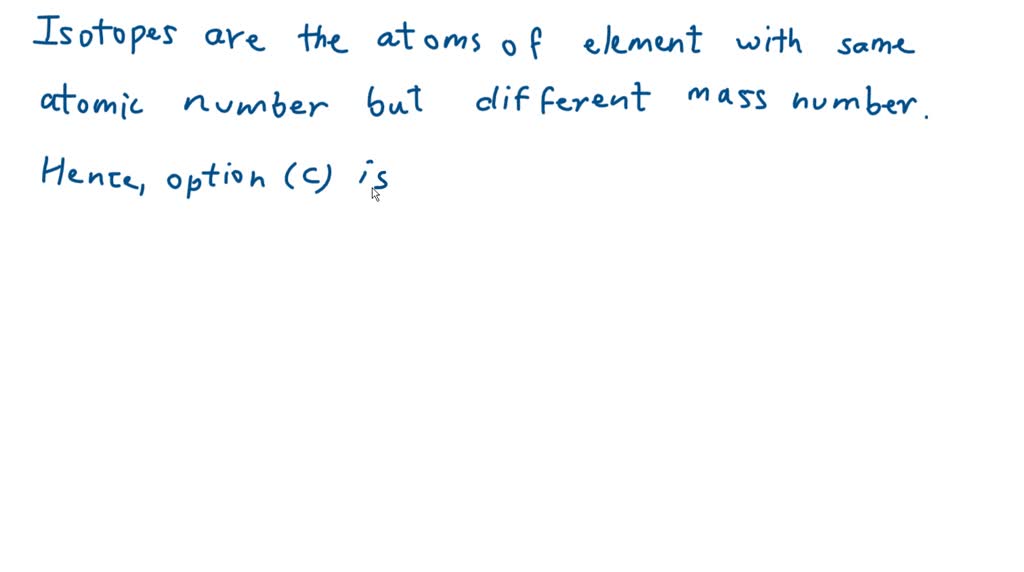 Isotopes are the atoms of element with same
atomic number but different mass number.
Hence, option (c) is